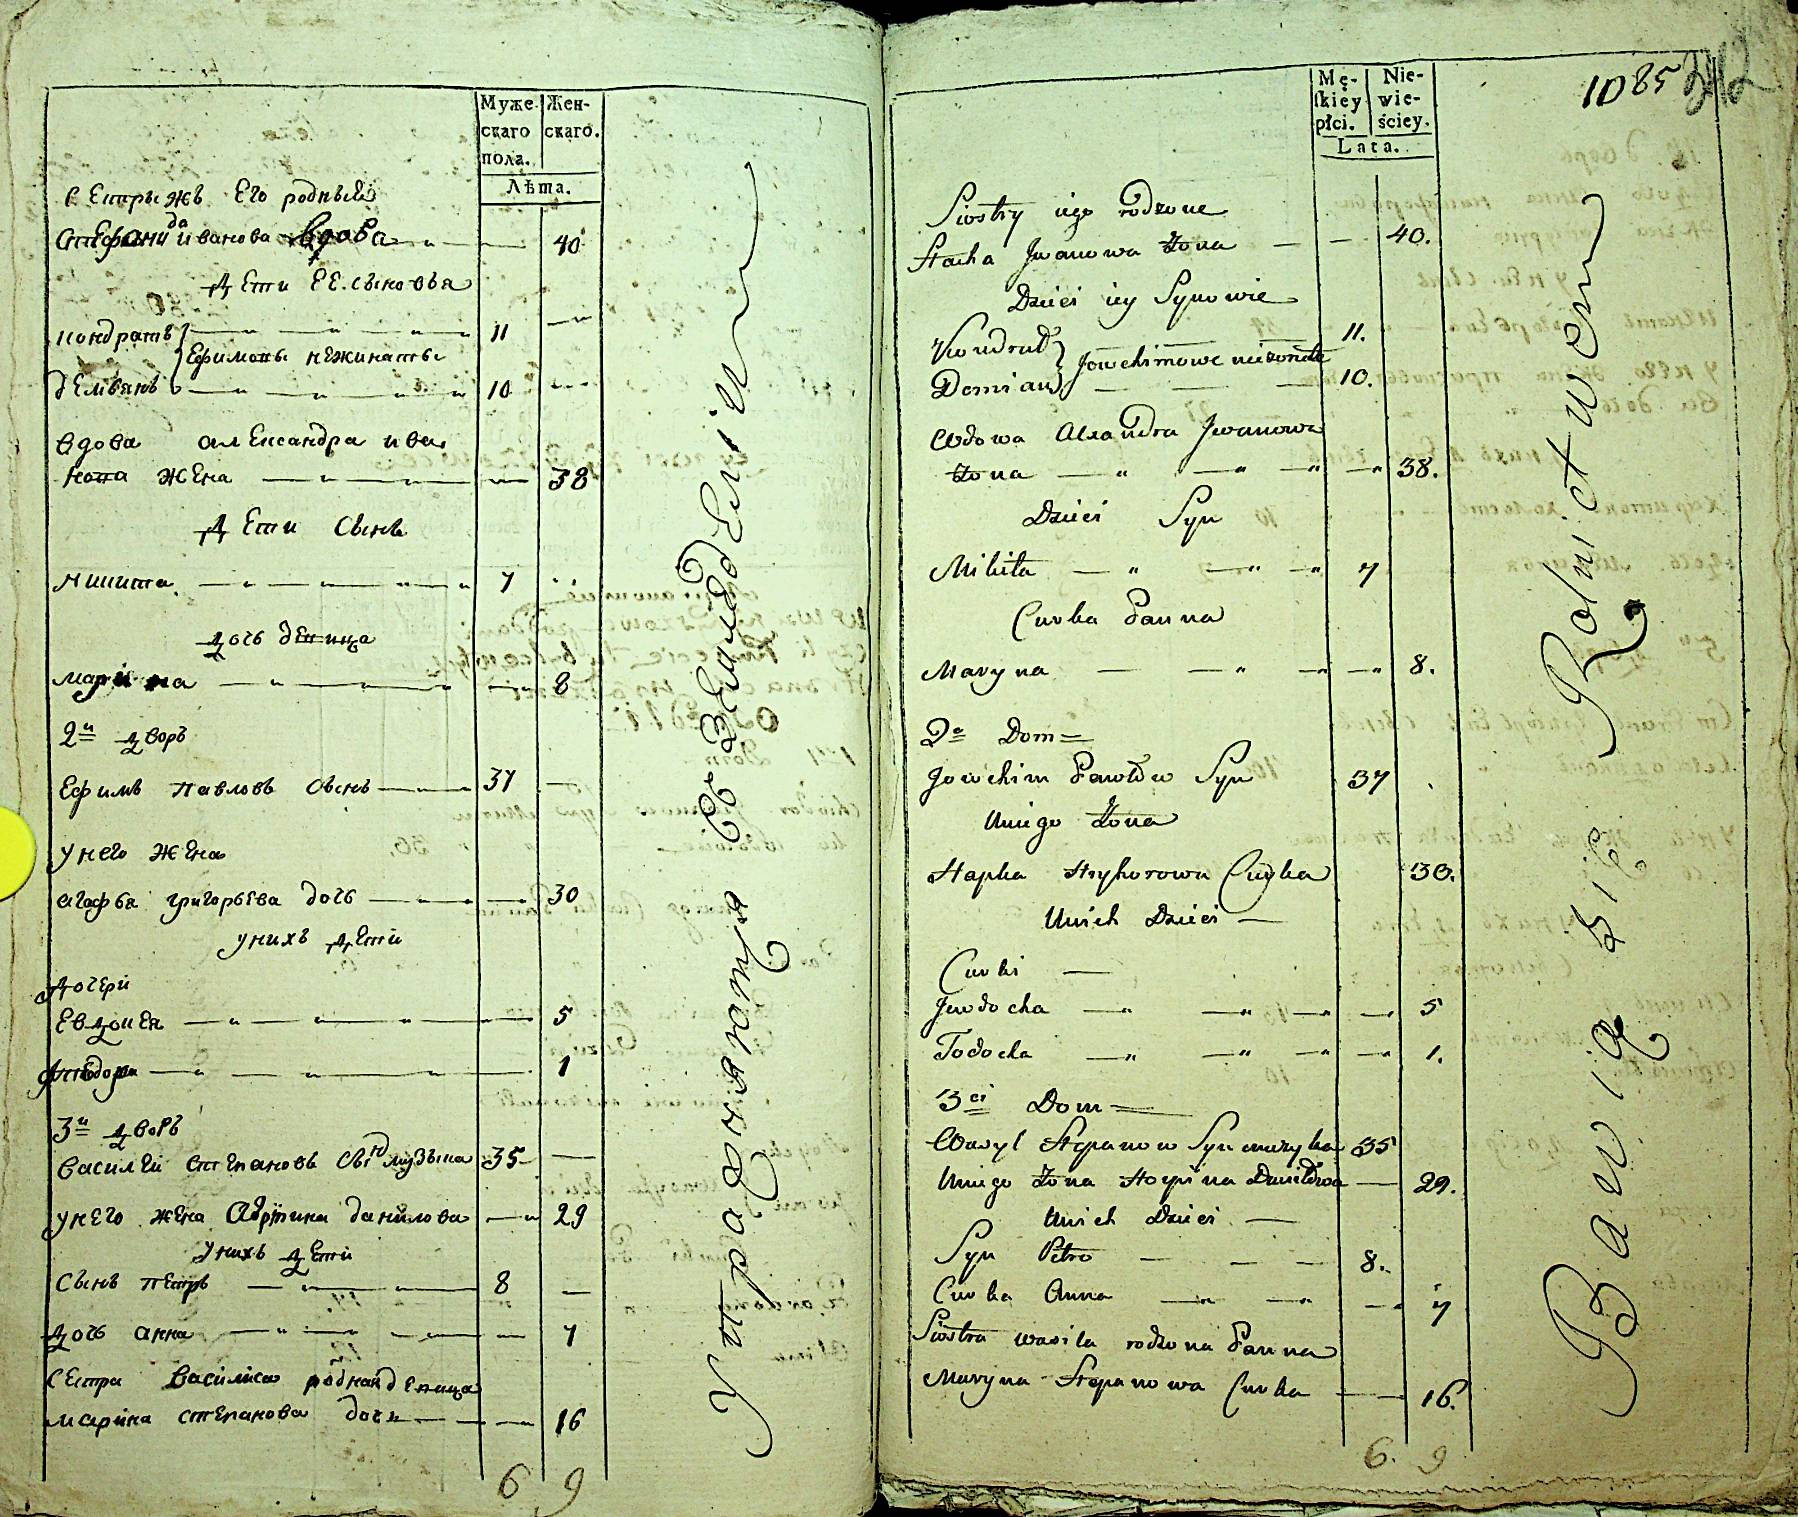 Муже-
скаго
пола.
Жен-
скаго.
Лѣта.
сестры жъ его родныя
Стефанида иванова вдова 40
дети ее сыновья
кондратъ 11
Ефимовы нежинаты
демьянъ 10
вдова александра ива
нова жена 38
дети сынъ
никита 7
дочь девица
марина 8
2й дворъ
Ефимъ павловъ сынъ 37
у него жена
агафья григорьева дочь 30
у нихъ дети
дочери
Евдокея 5
1
3й дворъ
василей степановъ сынъ музыка 35
у него жена данилова 29
у нихъ дети
сынъ петръ 8
дочь анна 7
сестра василиса родная девица
марина степанова дочь 16
6 9
Упражняются въ Земледелiи
1085
Mę-
ſkiey
płci.
Nie-
wie-
ściey.
Lata.
Siostry iego rodzone
Stacha Jwanowa żona 40.
Dzieci iey Synowie
Kondrat 11.
Jowchimowe nieżonate
Demian 10.
Wdowa Alexandra Jwanowa
żona 38.
Dzieci Syn
Mikita 7
Curka Panna
Maryna 8.
2i Dom
Jowchim Pawłow Syn 37
U niego żona
Hapka Hryhorowa Curka 30.
U nich Dzieci
Curki
Jewdocha 5
Todocha 1.
3ci Dom
Wasyl Stepanow Syn muzyka 35
U niego żona Daniłowa 29.
U nich Dzieci
Syn Petro 8.
Curka Anna 7
Siostra wasila rodzona Panna
Maryna Stepanowa Curka 16.
6. 9
Bawią się Rolnictwem